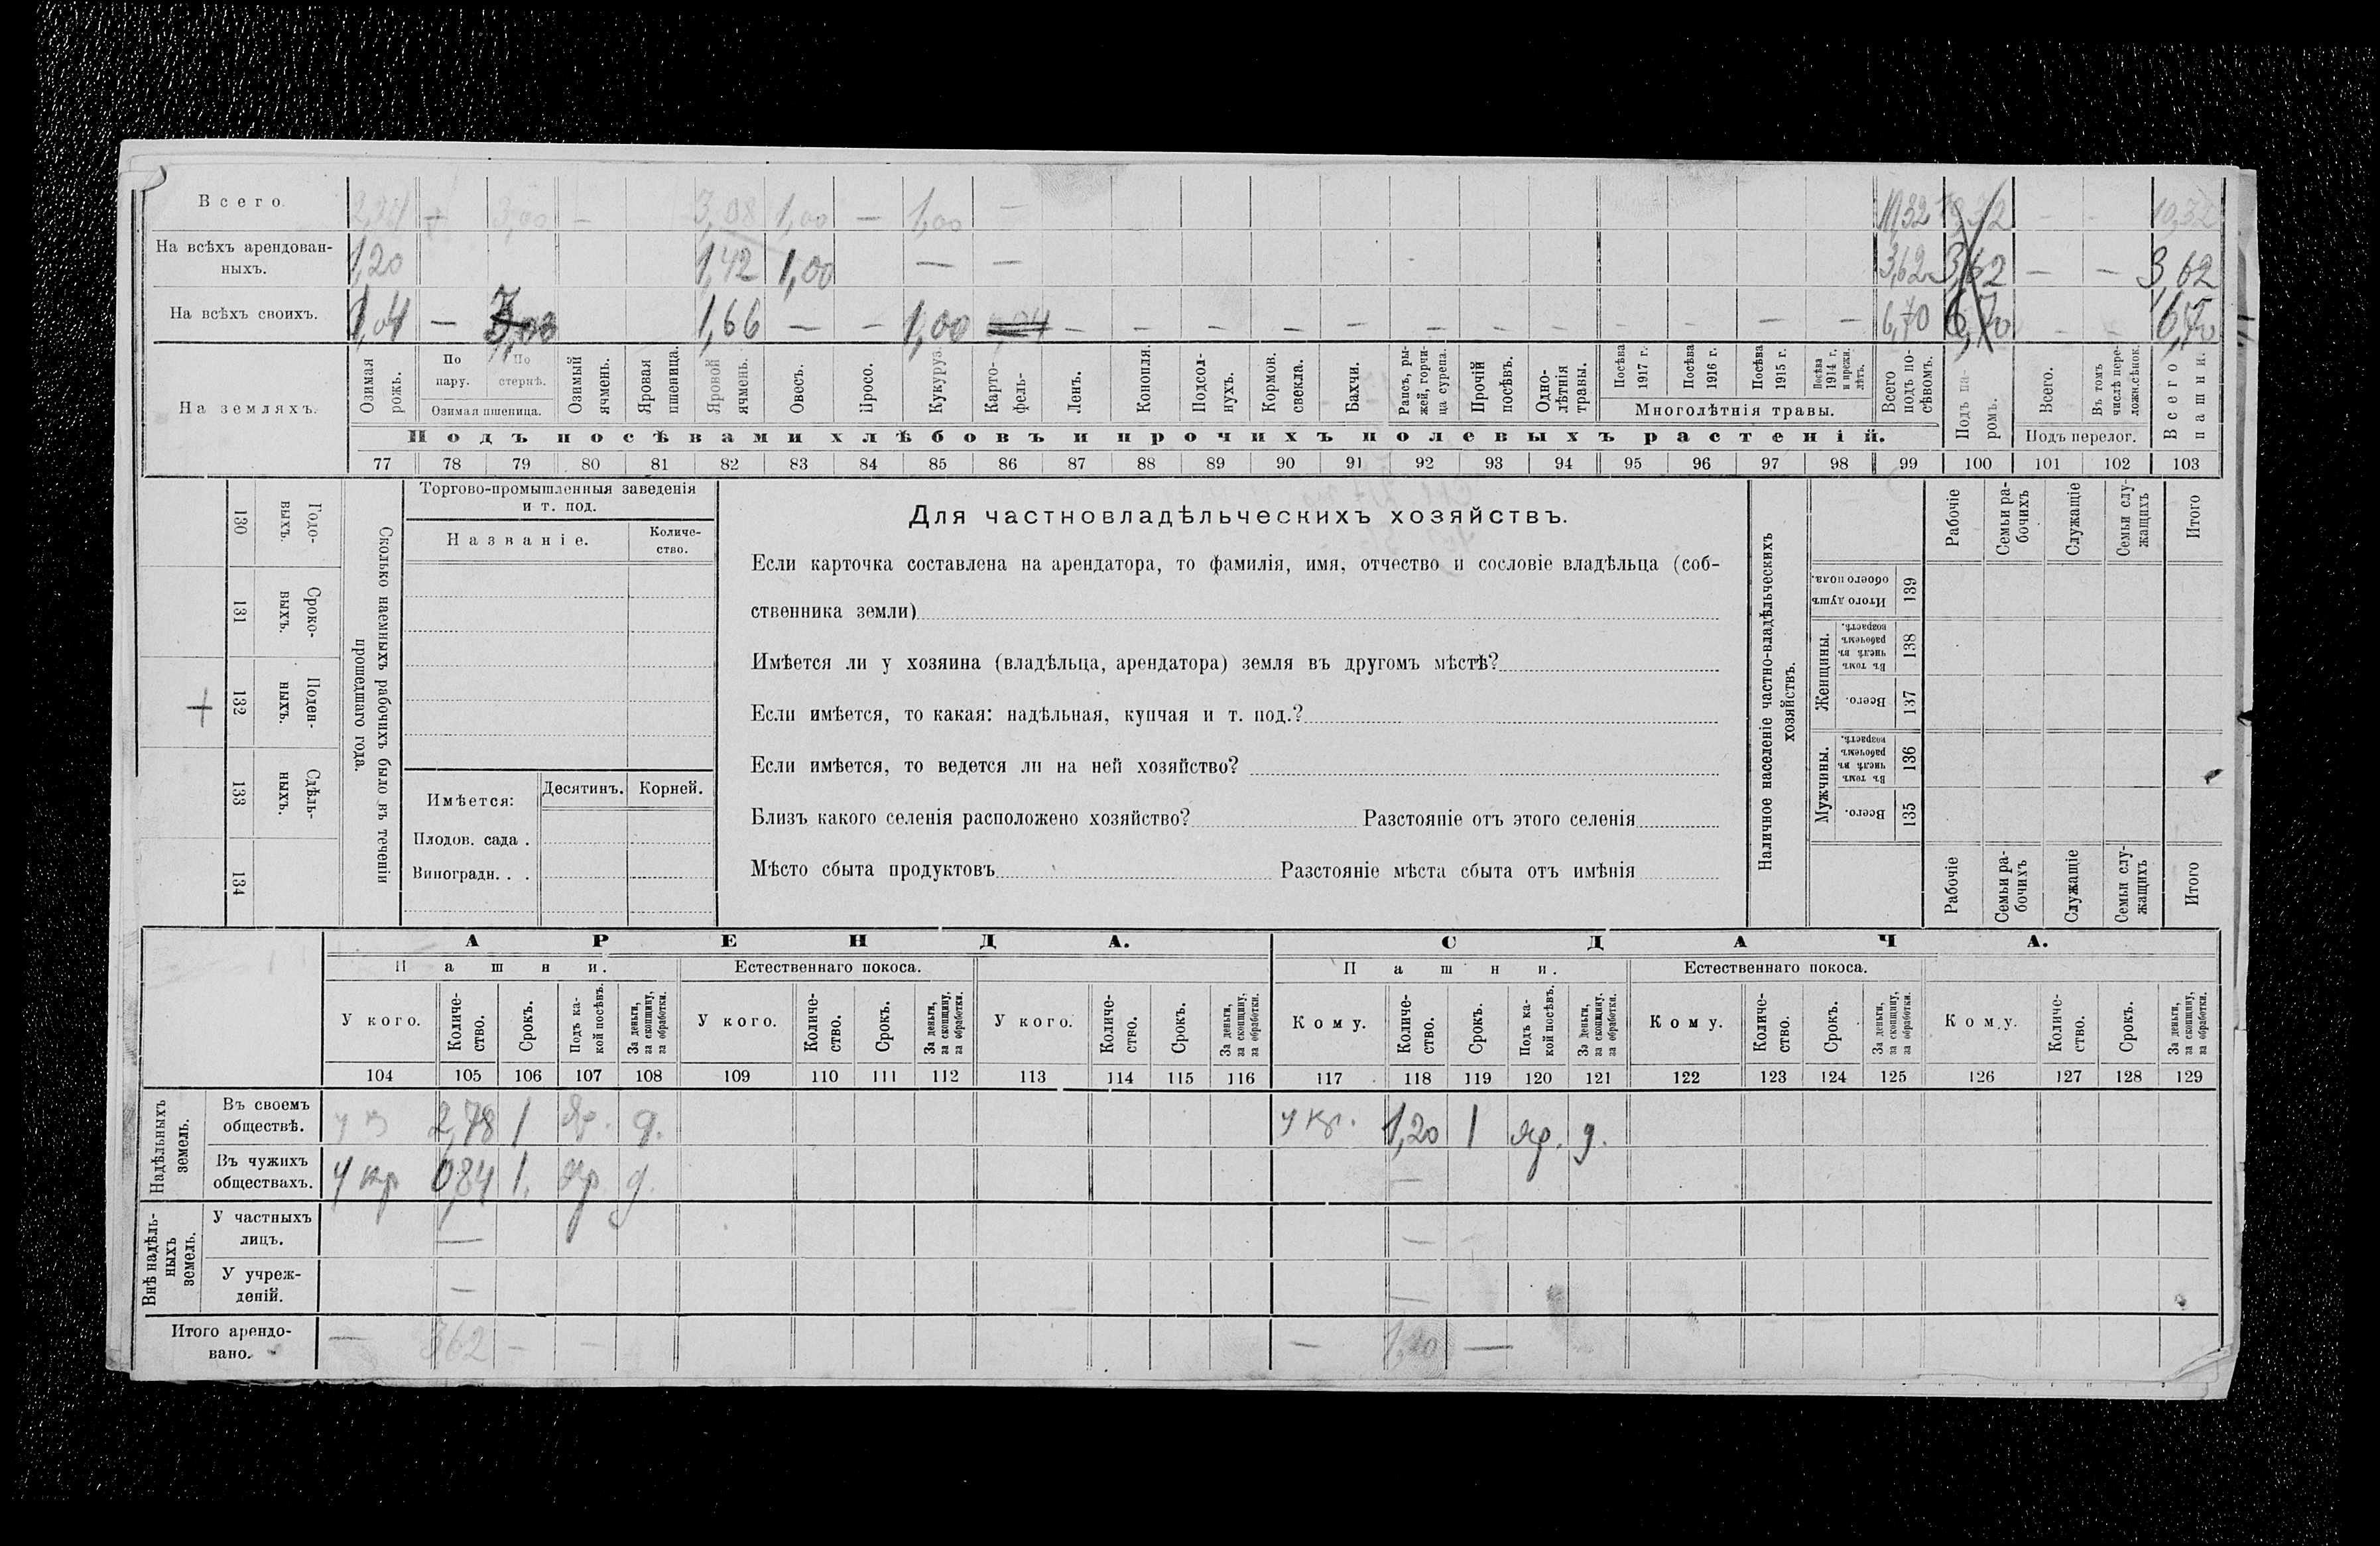 Всего. 2,24 + 3,00 — 3,08 1,00 — 1,00 — 10,32 — - 10,32
На всѣхъ арендован-
ныхъ. 1,20 1,42 1,00 — — 3,62 3,62 — — 3,62
На всѣхъ своихъ. 1,04 — 3,00 1,66 — — 1,00 — — — — — — — — — — — — — 6,70 6,70 — — 6,70
На земляхъ.
Озимая рожь.
По пару.
По стернѣ.
Озимая пшеница.
Озимый ячмень.
Яровая пшеница.
Яровой ячмень.
Овесъ.
Просо.
Кукуруза
Карто-
фель-
Ленъ.
Конопля.
Подсол-
нухъ.
Кормов.
свекла.
Бахчи.
Рапсъ, ры-
жей, горчи-
ца сурепа.
Прочій
посѣвъ.
Одно-
лѣтнія
травы.
Посѣва
1917 г.
Посѣва
1916 г.
Посѣва
1915 г.
Посѣва
1914 г.
и прежн.
лѣтъ.
Многолѣтнія травы.
Всего
подъ по-
сѣвомъ.
Подъ па-
ромъ.
Всего.
Въ томъ
числѣ пере-
ложн.сѣнок.
Подъ перелог.
Всего
пашни.
Подъ посѣвами хлѣбовъ и прочихъ полевыхъ растеній.
77 78 79 80 81 82 83 84 85 86 87 88 89 90 91 92 93 94 95 96 97 98 99 100 101 102 103
Сколько наемныхъ рабочихъ было въ теченіи
прошедшаго года.
Годо-
выхъ.
130
Сроко-
выхъ.
131
Поден-
ныхъ.
132
+
Сдѣль-
ныхъ.
133
134
Торгово-промышленныя заведенія
и т. под.
Названіе.
Количе-
ство.
Имѣется:
Десятинъ. Корней.
Плодов. сада .
Виноградн. . .
Для частновладѣльческихъ хозяйствъ.
Если карточка составлена на арендатора, то фамилія, имя, отчество и сословіе владѣльца (соб-
ственника земли)
Имѣется ли у хозяина (владѣльца, арендатора) земля въ другомъ мѣстѣ?
Если имѣется, то какая: надѣльная, купчая и т. под.?
Если имѣется, то ведется ли на ней хозяйство?
Близъ какого селенія расположено хозяйство? Разстояніе отъ этого селенія
Мѣсто сбыта продуктовъ Разстояніе мѣста сбыта отъ имѣнія
Наличное населеніе частно-владѣльческихъ
хозяйствъ.
Рабочіе
Семьи ра-
бочихъ
Служащіе
Семьи слу-
жащихъ
Итого
Итого душъ
обоего пола.
139
Женщины.
Въ томъ
числѣ въ
рабочемъ
возрастѣ.
138
Всего.
137
Мужчины.
Въ томъ
числѣ въ
рабочемъ
возрастѣ.
136
Всего.
135
Рабочіе
Семьи ра-
бочихъ
Служащіе
Семьи слу-
жащихъ
Итого
АРЕНДА. СДАЧА.
Пашни. Естественнаго покоса. Пашни. Естественнаго покоса.
У кого.
Количе-
ство.
Срокъ.
Подъ ка-
кой посѣвъ.
За деньги,
за скопщину,
за обработки.
У кого.
Количе-
ство.
Срокъ.
За деньги,
за скопщину,
за обработки.
У кого.
Количе-
ство.
Срокъ.
За деньги,
за скопщину,
за обработки.
Кому.
Количе-
ство.
Срокъ.
Подъ ка-
кой посѣвъ.
За деньги,
за скопщину,
за обработки.
Кому.
Количе-
ство.
Срокъ.
За деньги,
за скопщину,
за обработки.
Кому.
Количе-
ство.
Срокъ.
За деньги,
за скопщину,
за обработки.
104 105 106 107 108 109 110 111 112 113 114 115 116 117 118 119 120 121 122 123 124 125 126 127 128 129
Надѣльныхъ
земель.
Въ своемъ
обществѣ. 2,78 1 Яр. д. у кр. 1,20 1 яр. д.
Въ чужихъ
обществахъ. у кр 0,84 1. Яр д. —
Внѣ надѣль-
ныхъ
земель.
У частныхъ
лицъ. — — -
У учреж-
деній. — —
Итого арендо-
вано. — 3,62 — — — 1,20 —